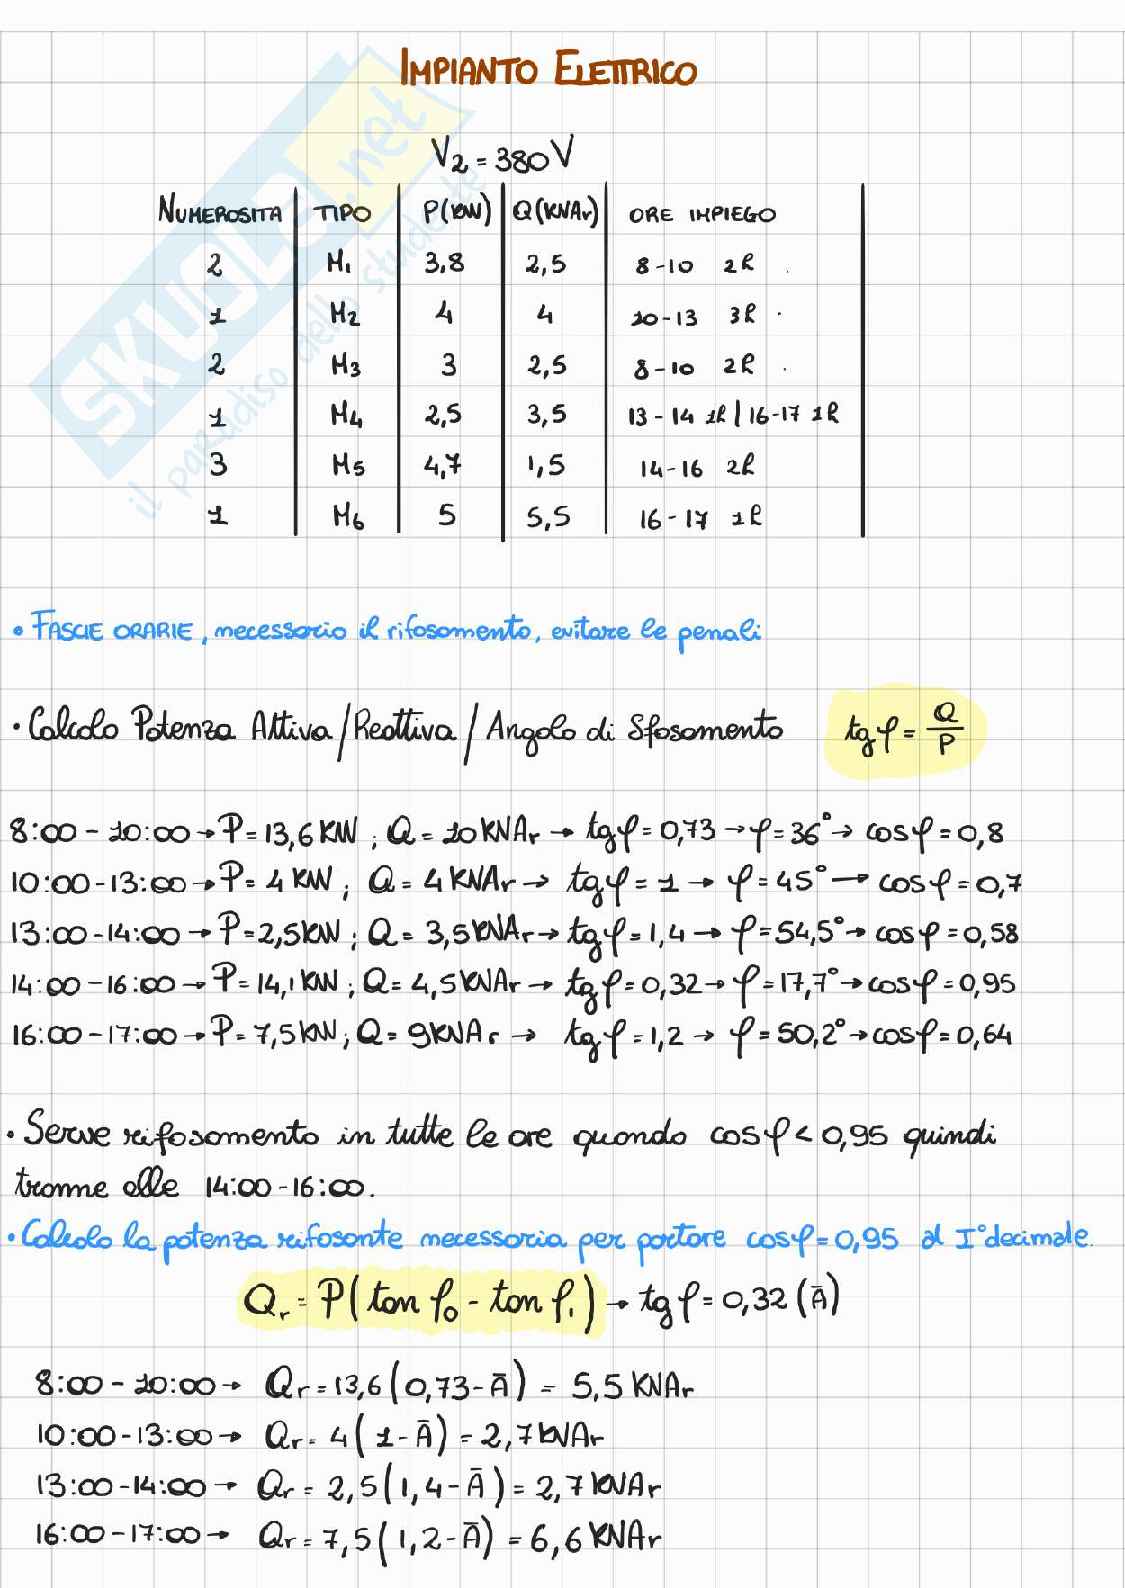 IMPIANTO ELETTRICO
V2 = 380V
NUMEROSITA | TIPO | P(KW) | Q(KVAr) | ORE IMPIEGO
2 | M1 | 3,8 | 2,5 | 8-10 2h
1 | M2 | 4 | 4 | 10-13 3h
2 | M3 | 3 | 2,5 | 8-10 2h
1 | M4 | 2,5 | 3,5 | 13-14 1h | 16-17 1h
3 | M5 | 4,7 | 1,5 | 14-16 2h
1 | M6 | 5 | 5,5 | 16-17 1h
SKUOLA.net
il paradiso dello studente
• FASCIE ORARIE, necessario il rifasamento, evitare le penali
• Calcolo Potenza Attiva/Reattiva/Angolo di Sfasamento tgφ = Q/P
8:00 - 10:00 → P = 13,6 KW ; Q = 10 KVAr → tgφ = 0,73 → φ = 36° → cosφ = 0,8
10:00-13:00 → P = 4 KW ; Q = 4 KVAr → tgφ = 1 → φ = 45° → cosφ = 0,7
13:00-14:00 → P = 2,5 KW ; Q = 3,5 KVAr → tgφ = 1,4 → φ = 54,5° → cosφ = 0,58
14:00-16:00 → P = 14,1 KW ; Q = 4,5 KVAr → tgφ = 0,32 → φ = 17,7° → cosφ = 0,95
16:00-17:00 → P = 7,5 KW ; Q = 9 KVAr → tgφ = 1,2 → φ = 50,2° → cosφ = 0,64
• Serve rifasamento in tutte le ore quando cosφ < 0,95 quindi
tranne alle 14:00-16:00.
• Calcolo la potenza rifasante necessaria per portare cosφ = 0,95 al I° decimale.
Qr = P(tan φ0 - tan φ1) → tgφ = 0,32 (Ā)
8:00 - 10:00 → Qr = 13,6(0,73-Ā) = 5,5 KVAr
10:00-13:00 → Qr = 4(1-Ā) = 2,7 KVAr
13:00-14:00 → Qr = 2,5(1,4-Ā) = 2,7 KVAr
16:00-17:00 → Qr = 7,5(1,2-Ā) = 6,6 KVAr